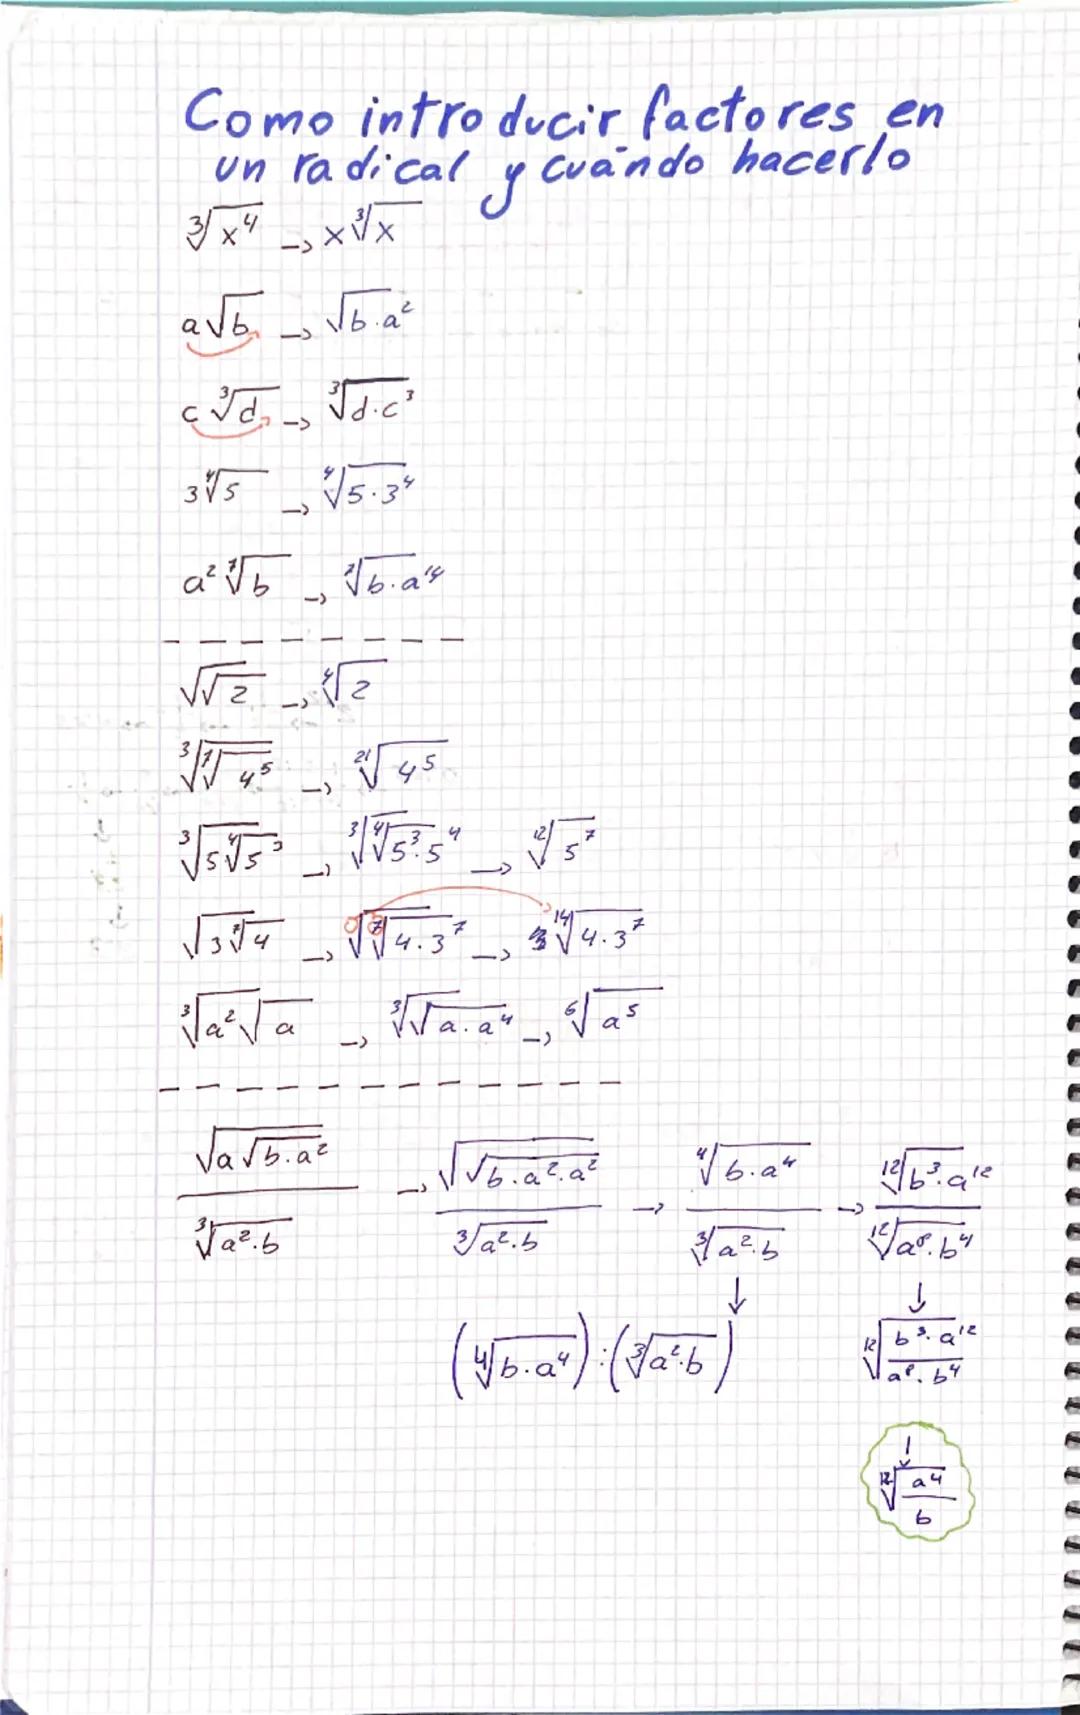 Como introducir factores en
un radical y cuándo hacerlo
∛(x⁴) → x∛x
a√b → √(b·a²)
c∛d → ∛(d·c³)
3∜5 → ∜(5·3⁴)
a² ⁷√b → ⁷√(b·a¹⁴)
√√2 → ∜2
∛(⁷√(4⁵)) → ²¹√(4⁵)
∛(5∜(5³)) → ∛(∜(5³·5⁴)) → ¹²√(5⁷)
√(3 ⁷√4) → √(⁷√(4·3⁷)) → ¹⁴√(4·3⁷)
∛(a²√a) → ∛(√(a·a⁴)) → ⁶√(a⁵)
√(a√(b·a²)) / ∛(a²·b) → √√(b·a²·a²) / ∛(a²·b) → ∜(b·a⁴) / ∛(a²·b) → ¹²√(b³·a¹²) / ¹²√(a⁸·b⁴)
↓ ↓
(∜(b·a⁴)) : (∛(a²·b)) ¹²√(b³·a¹² / a⁸·b⁴)
↓
¹²√(a⁴ / b)